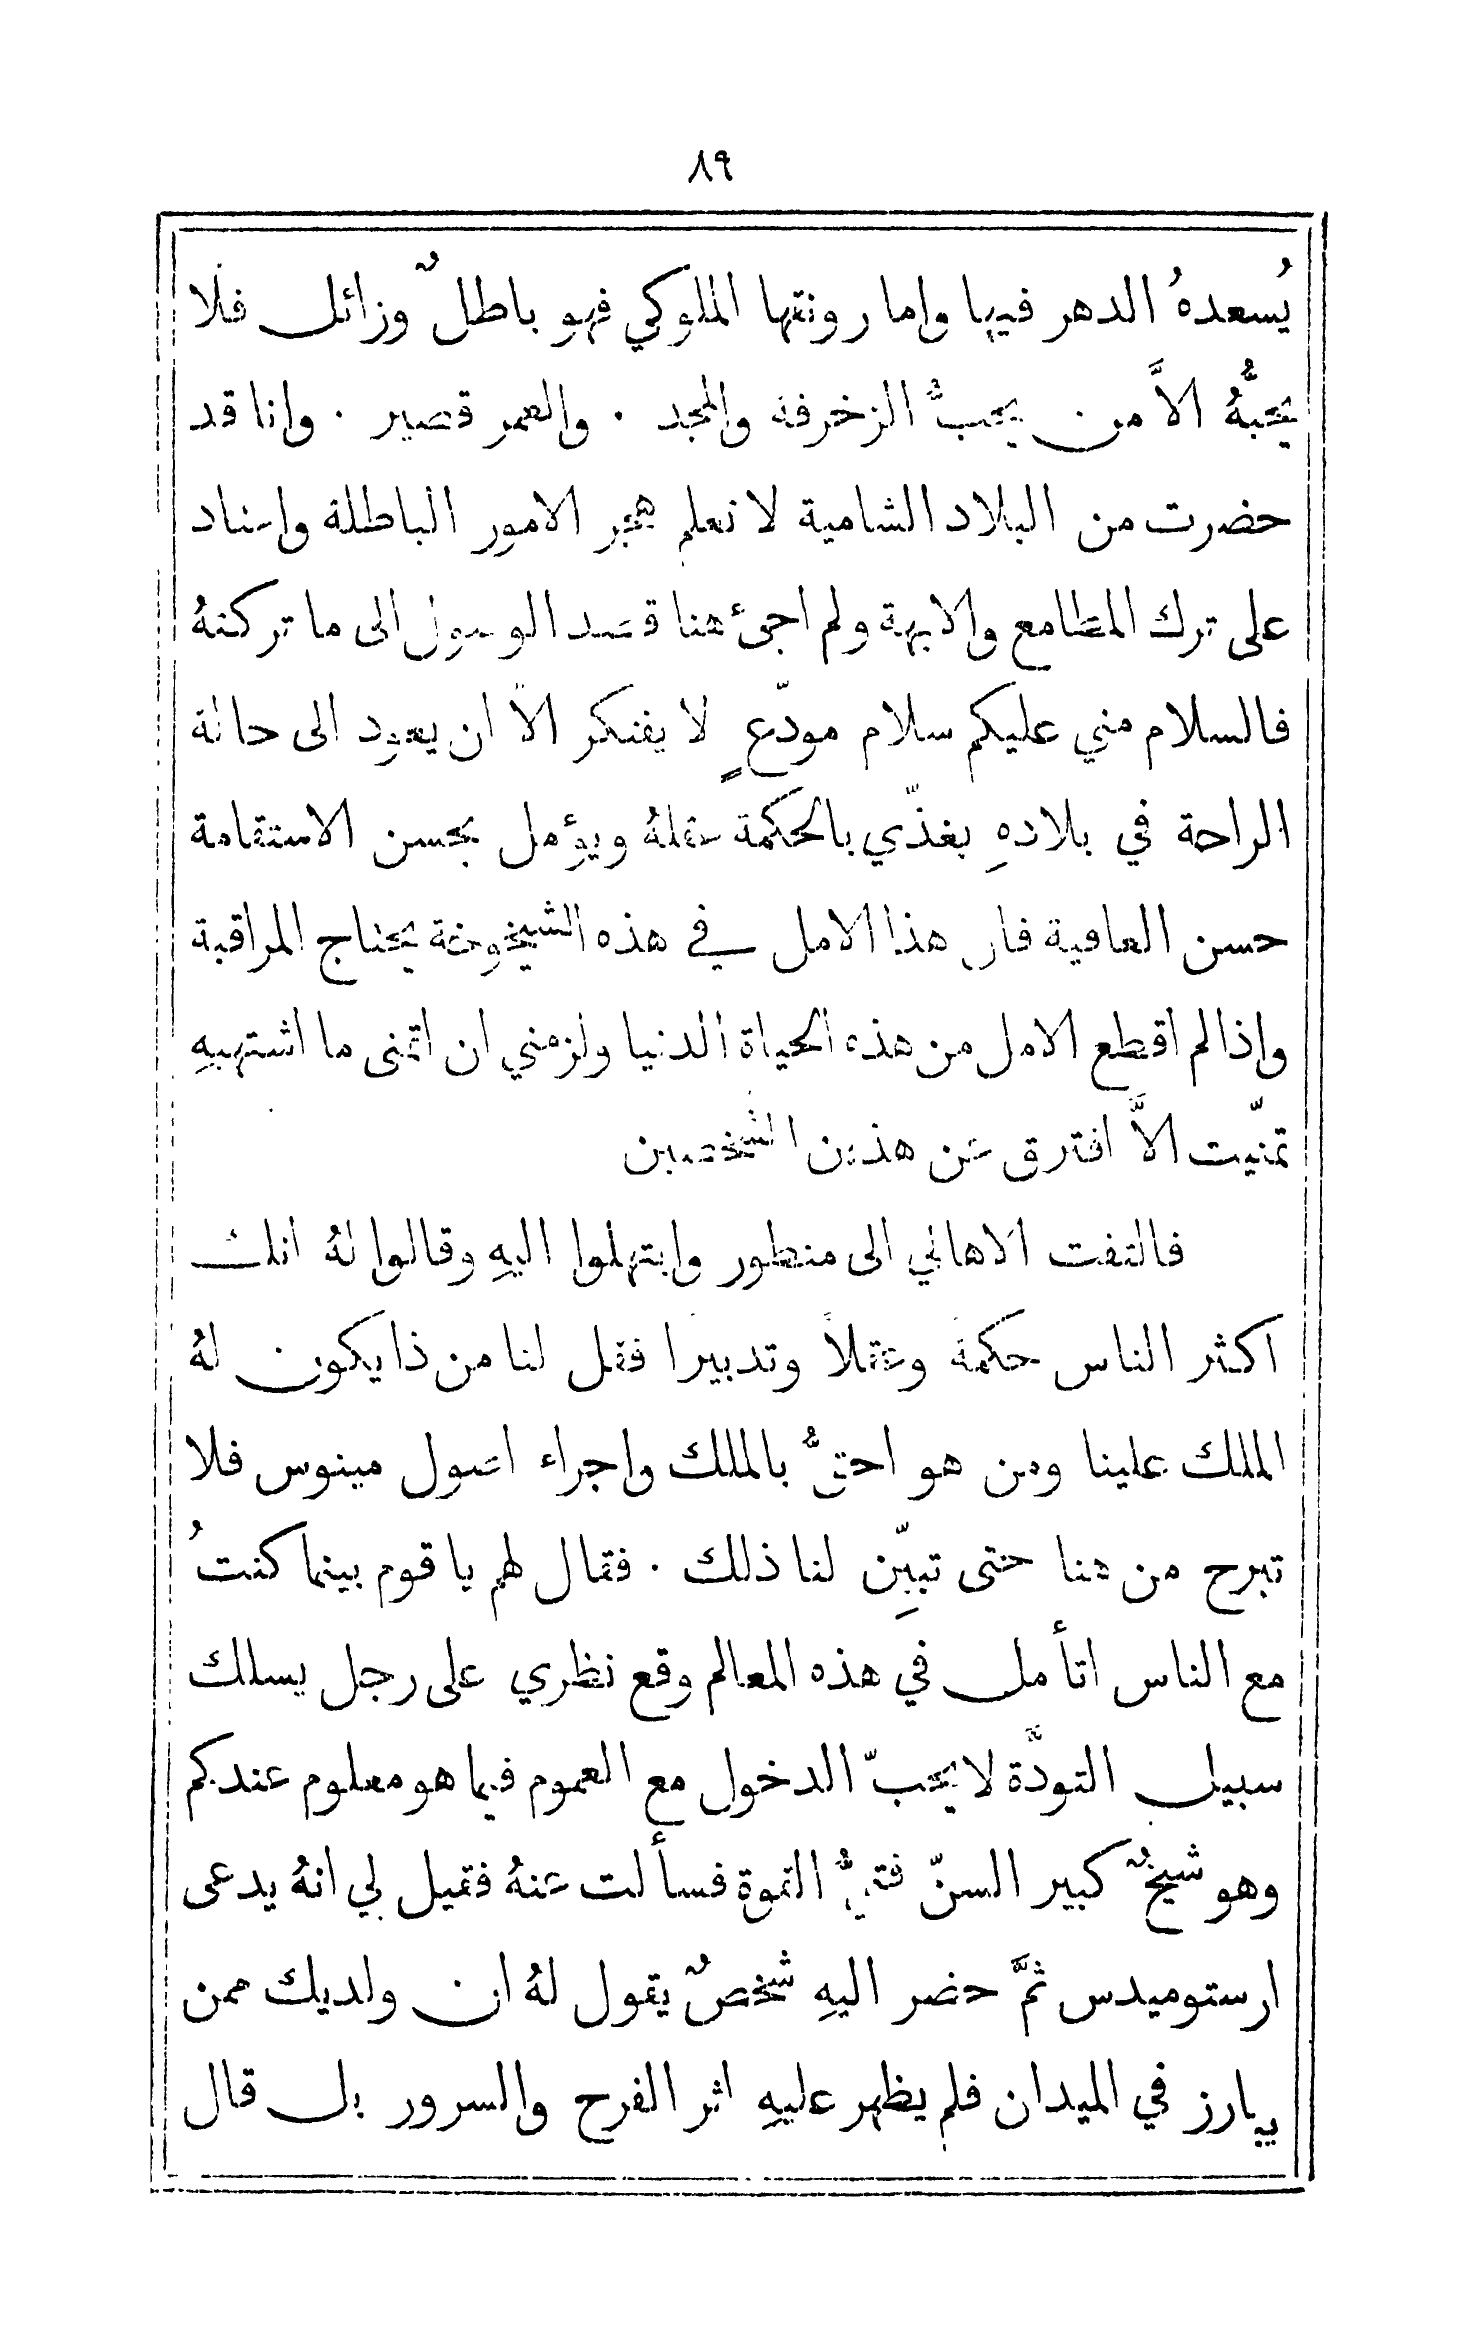 ٨٩
يُسعدهُ الدهر فيها واما رونقها الملوكي فهو باطلٌ وزائل فلا
يحبُّهُ الاَّ من يحبُّ الزخرفة والمجد . والعمر قصير . وانا قد
حضرت من البلاد الشامية لا نعلم هجر الامور الباطلة واعناد
على ترك المطامع والابهة ولم اجئ هنا قصد الوصول الى ما تركتهُ
فالسلام مني عليكم سلام مودّعٍ لا يفتكر الاّ ان يعود الى حالة
الراحة في بلادهِ يغذّي بالحكمة عقلهُ ويؤمل بحسن الاستقامة
حسن العافية فان هذا الامل في هذه الشيخوخة يحتاج المراقبة
واذا لم اقطع الامل من هذه الحياة الدنيا ولزمني ان اتمنى ما اشتهيهِ
تمنّيت الاَّ افترق عن هذين الشخصين
فالتفت الاهالي الى منطور وابتهلوا اليهِ وقالوا لهُ انك
اكثر الناس حكمة وعقلاً وتدبيرا فقل لنا من ذا يكون لهُ
الملك علينا ومن هو احقُّ بالملك واجراء اصول مينوس فلا
تبرح من هنا حتى تبيّن لنا ذلك . فقال لهم يا قوم بينما كنتُ
مع الناس اتأمل في هذه المعالم وقع نظري على رجل يسلك
سبيل التودَّة لا يحبّ الدخول مع العموم فيما هو معلوم عندكم
وهو شيخٌ كبير السنّ فتيُّ القوة فسألت عنهُ فقيل لي انهُ يدعى
ارستوميدس ثمَّ حضر اليهِ شخصٌ يقول لهُ ان ولديك ممن
يبارز في الميدان فلم يظهر عليهِ اثر الفرح والسرور بل قال